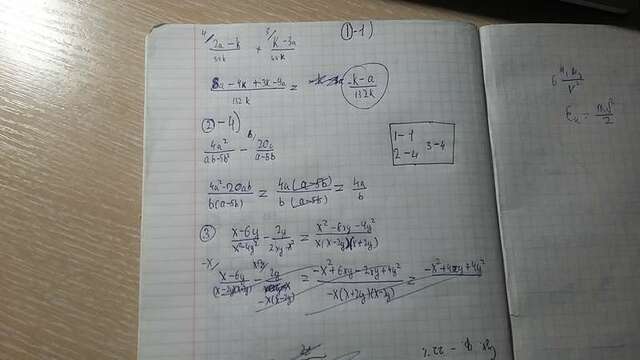 4/ 2a-k/33k + 3/ k-3a/44k ①-1)
8a-4k+3k-9a/132k = -k-a/132k
②-4)
4a²/ab-5b² - b/ 20a/a-5b
1-1
2-4 3-4
4a²-20ab/b(a-5b) = 4a(a-5b)/b(a-5b) = 4a/b
③ x-6y/x²-4y² - 2y/2xy-x² = x²-6xy-4y²/x(x-2y)(x+2y)
-x/ x-6y/(x-2y)(x+2y) - x+2y/ 2y/-x(x-2y) = -x²+6xy-2xy+4y²/-x(x+2y)(x-2y) = -x²+4xy+4y²
Eк = m·v²/2